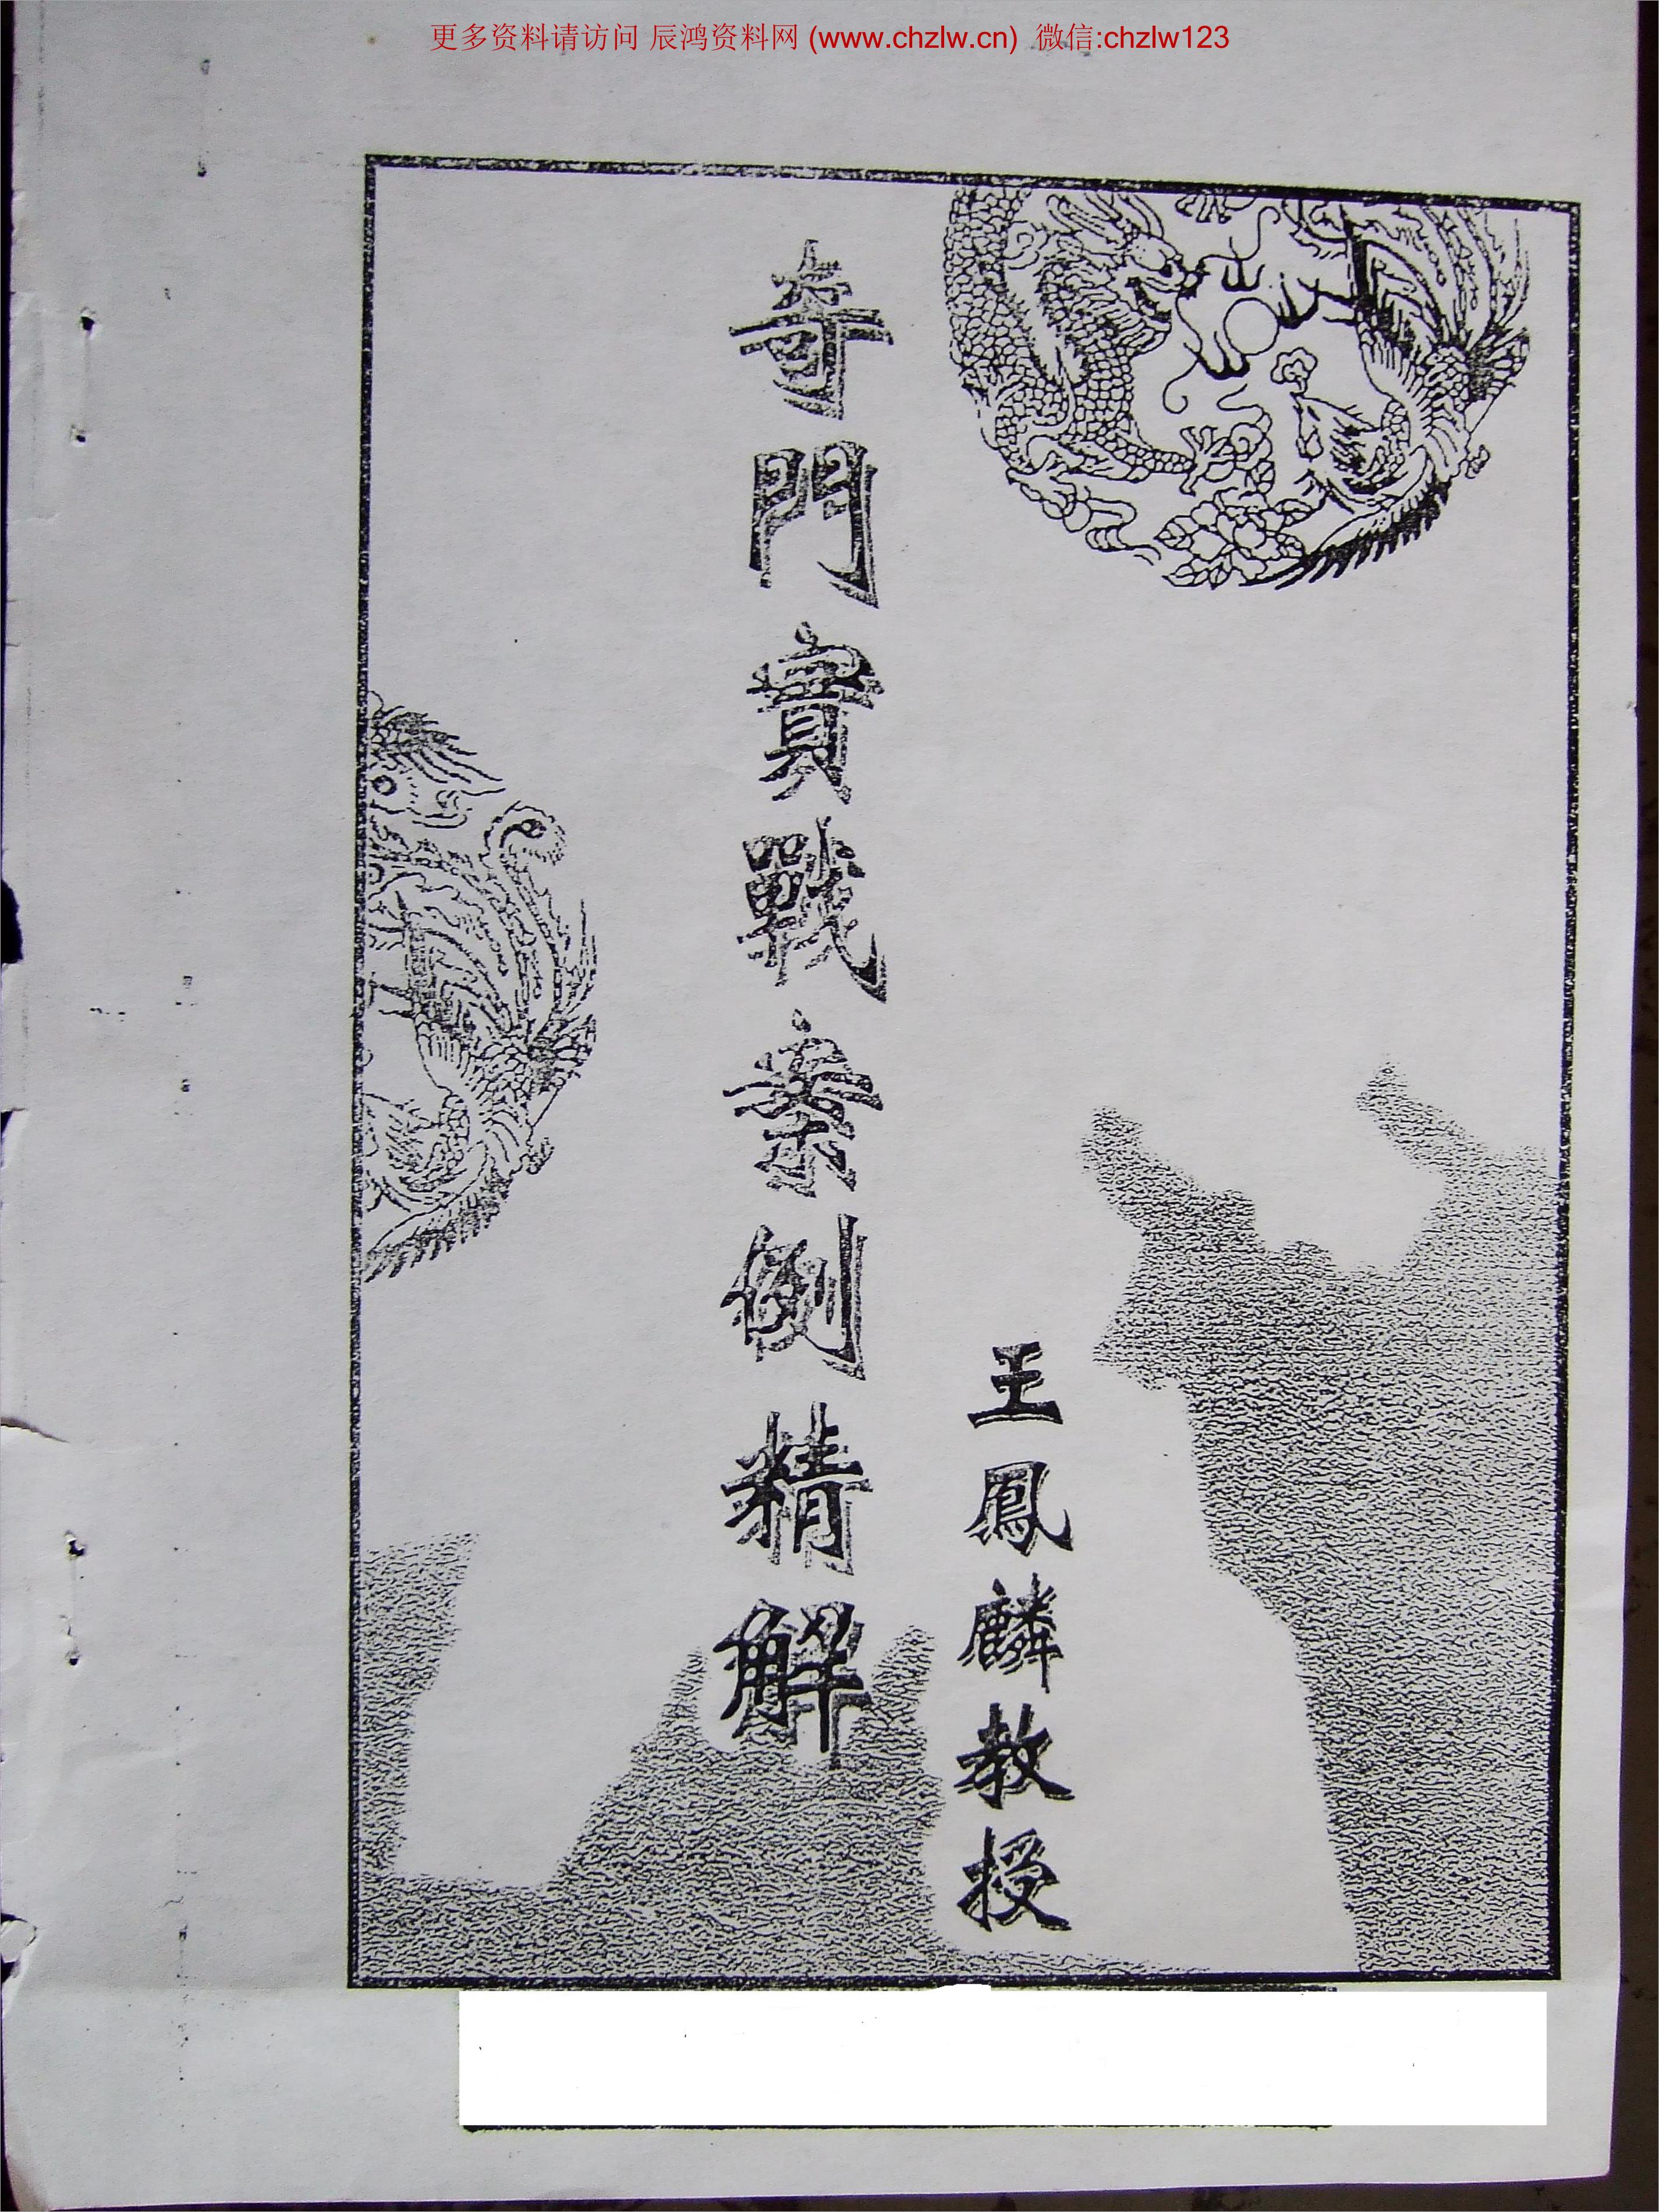 更多资料请访问 辰鸿资料网 (www.chzlw.cn) 微信:chzlw123
奇門實戰案例精解
王鳳麟教授